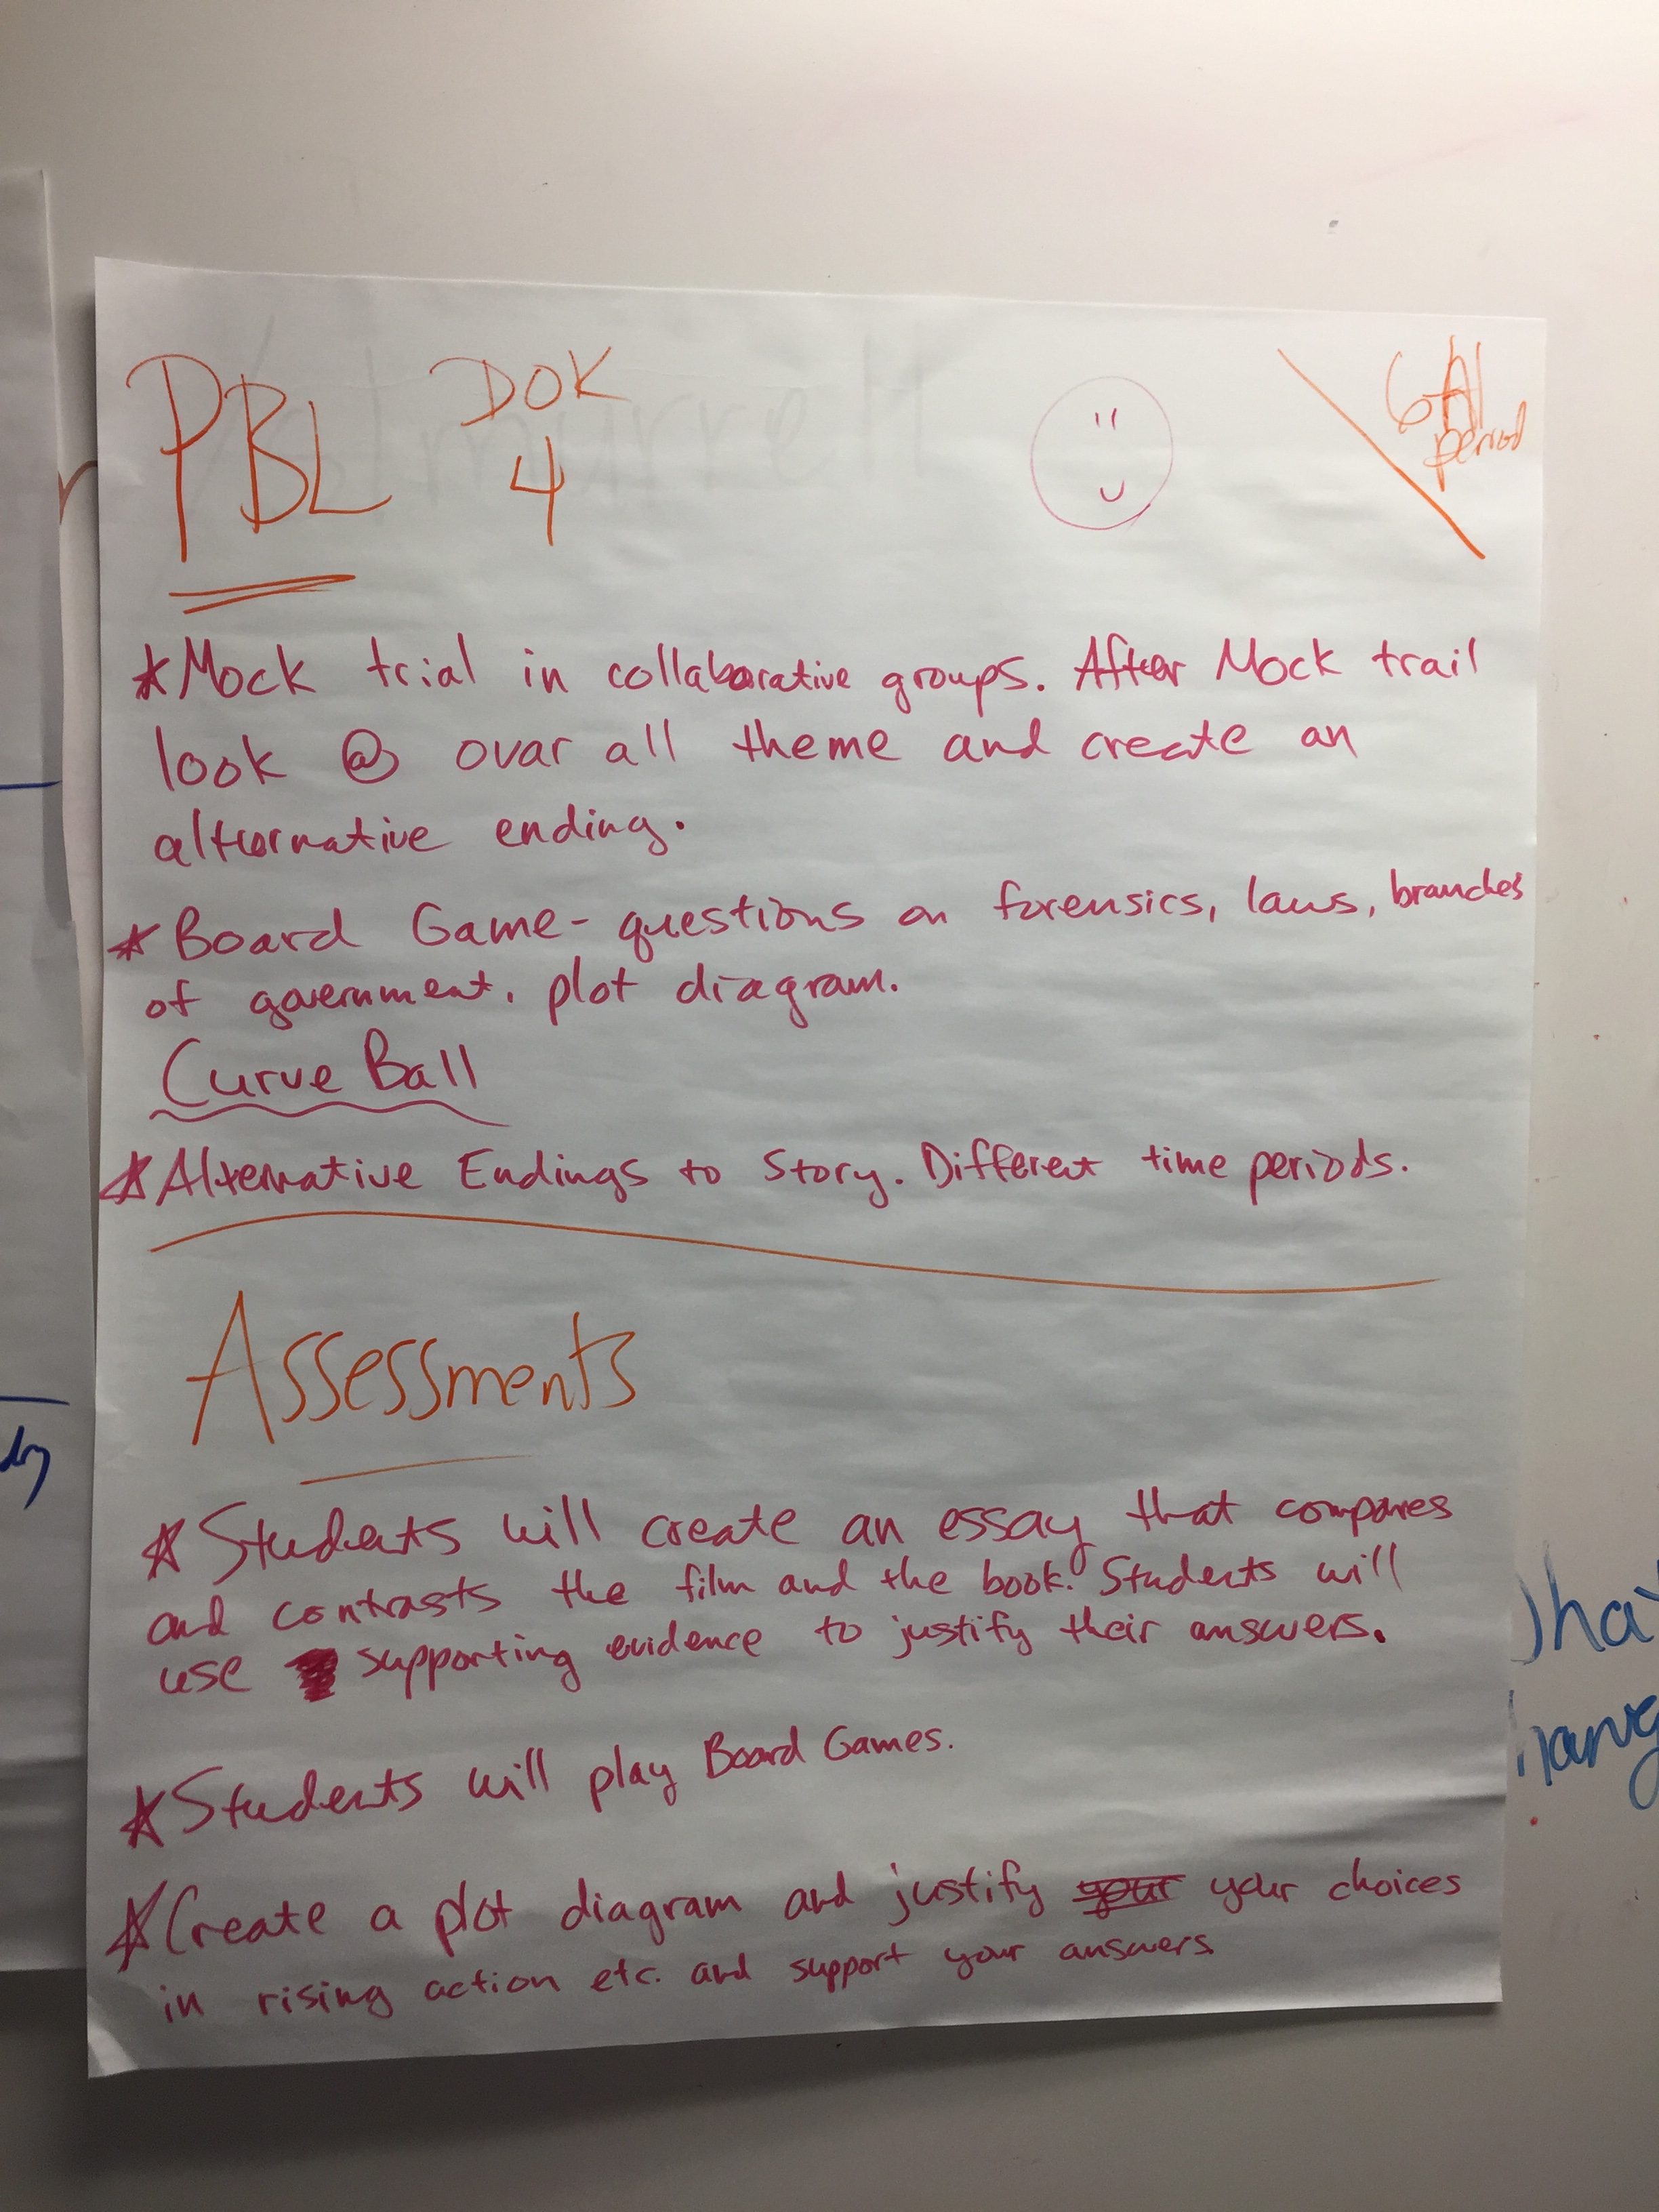 PBL DOK
4
6th
period
*Mock trial in collaborative groups. After Mock trail
look @ over all theme and create an
alternative ending.
*Board Game- questions on forensics, laws, branches
of government, plot diagram.
Curve Ball
*Alternative Endings to Story. Different time periods.
Assessments
*Students will create an essay that compares
and contrasts the film and the book. Students will
use supporting evidence to justify their answers.
*Students will play Board Games.
*Create a plot diagram and justify your your choices
in rising action etc. and support your answers.